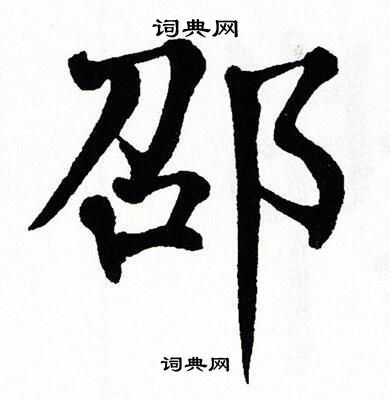 词典网
邵
词典网